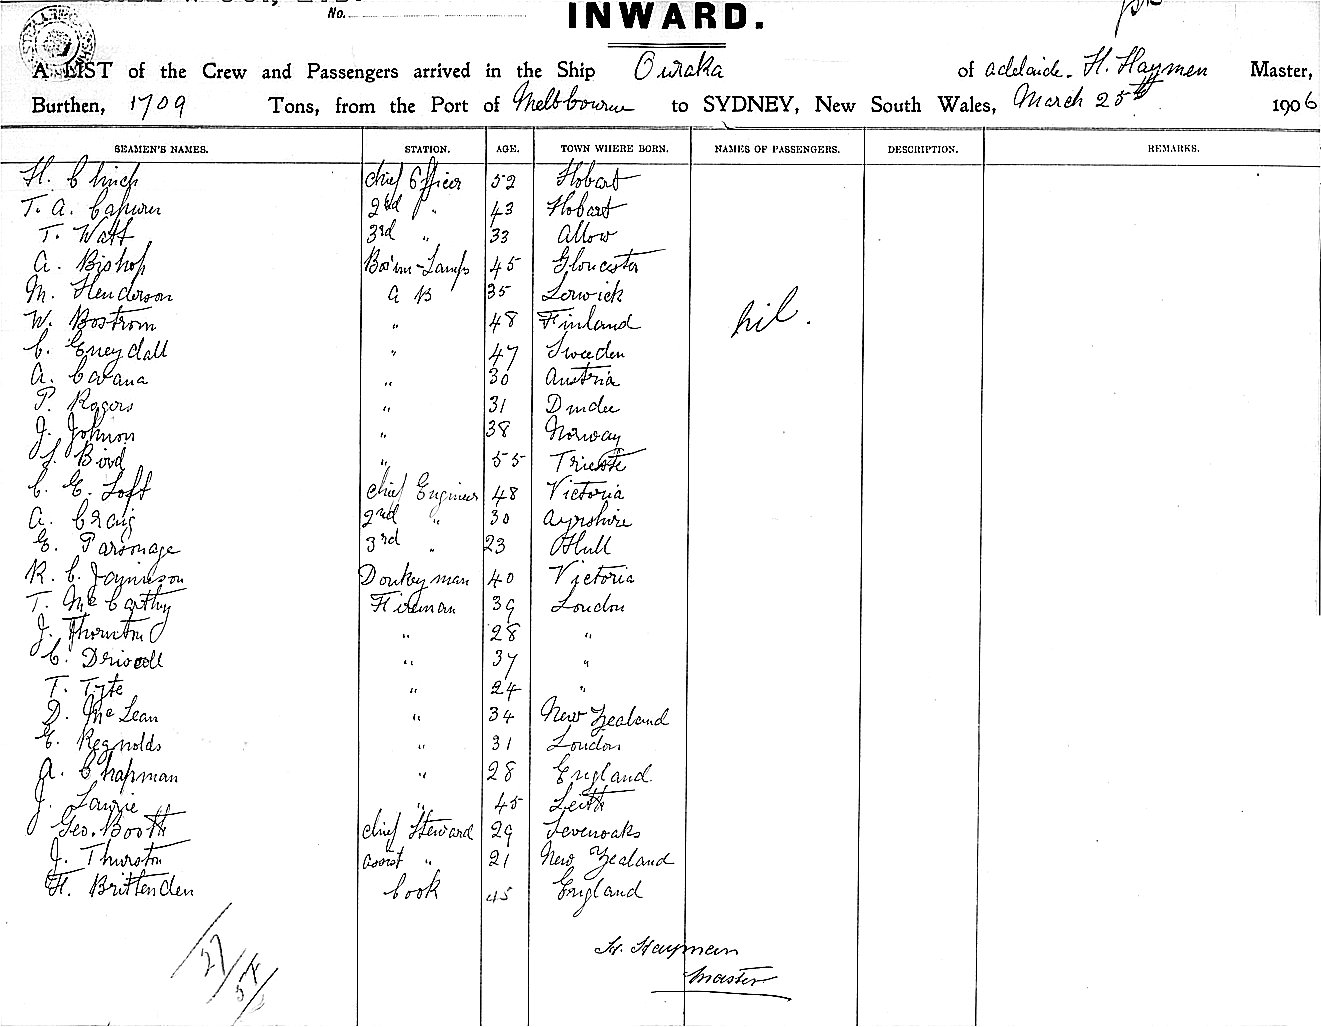 No.
INWARD.
A LIST of the Crew and Passengers arrived in the Ship Owraka of Adelaide. H. Haymen Master,
Burthen, 1709 Tons, from the Port of Melbourne to SYDNEY, New South Wales, March 25th 1906
SEAMEN'S NAMES. STATION. AGE. TOWN WHERE BORN. NAMES OF PASSENGERS. DESCRIPTION. REMARKS.
H. Clinch Chief Officer 52 Hobart
T. A. 2nd " 43 Hobart
T. Watt 3rd " 33 Allow
A. Bishop Bo'sun-Lamps 45 Gloucester
M. Henderson A B 35 Lerwick
nil.
W. Bostrom " 48 Finland
C. " 47 Sweden
A. Cavana " 30 Austria
P. Rogers " 31 Dundee
J. Johnson " 38 Norway
J. Bird " 55 Trieste
C. E. Loft Chief Engineer 48 Victoria
A. Craig 2nd " 30 Ayrshire
E. Parsonage 3rd " 23 Hull
R. C. Jamieson Donkeyman 40 Victoria
T. McCarthy Fireman 39 London
J. Thornton " 28 "
C. Driscoll " 37 "
T. Tyte " 24 "
D. McLean " 34 New Zealand
E. Reynolds " 31 London
A. Chapman " 28 England
J. Lawrie " 45 Leith
Geo. Booth Chief Steward 29 Sevenoaks
J. Thurston Assist " 21 New Zealand
H. Brittenden Cook 45 England
H. Haymen
Master
27/54